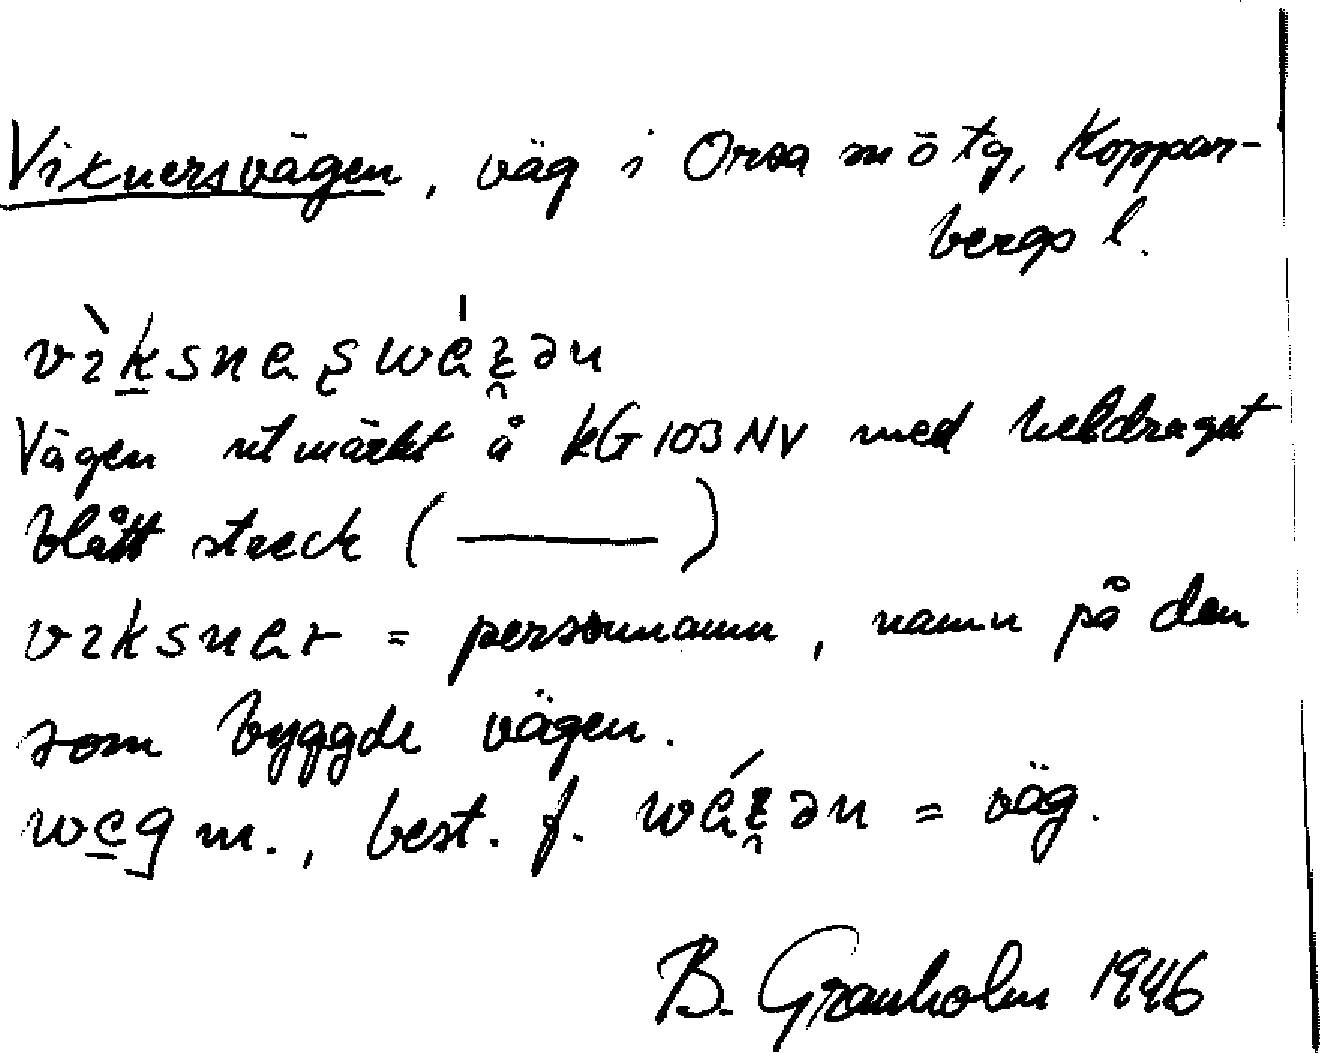 Viknersvägen, väg i Orsa m ö tg, Koppar-
bergs l.
vìksnaʂwázən
Vägen utmärkt å kG 103 NV med heldraget
blått streck ( ——— )
vɪksnar = personnamn, namn på den
som byggde vägen.
weg m., best. f. wázən = väg.
B. Granholm 1946